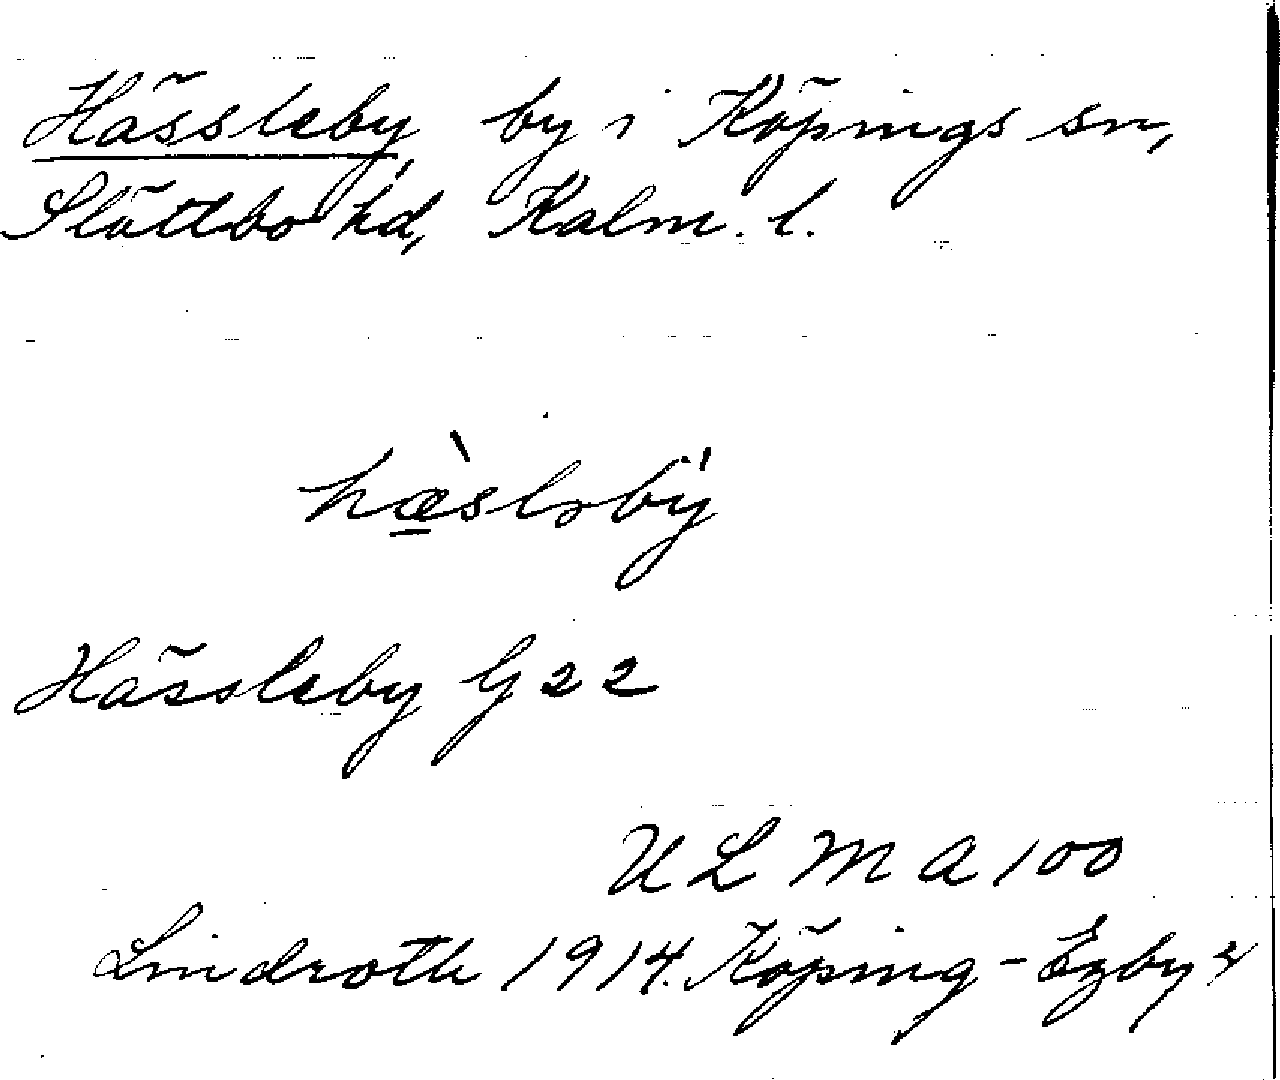 Hässleby by i Köpings sn,
Slättbo hd, Kalm. l.
hæ̀slsbý
Hässleby G 22
ULMA 100
Lindroth 1914. Köping - Egby